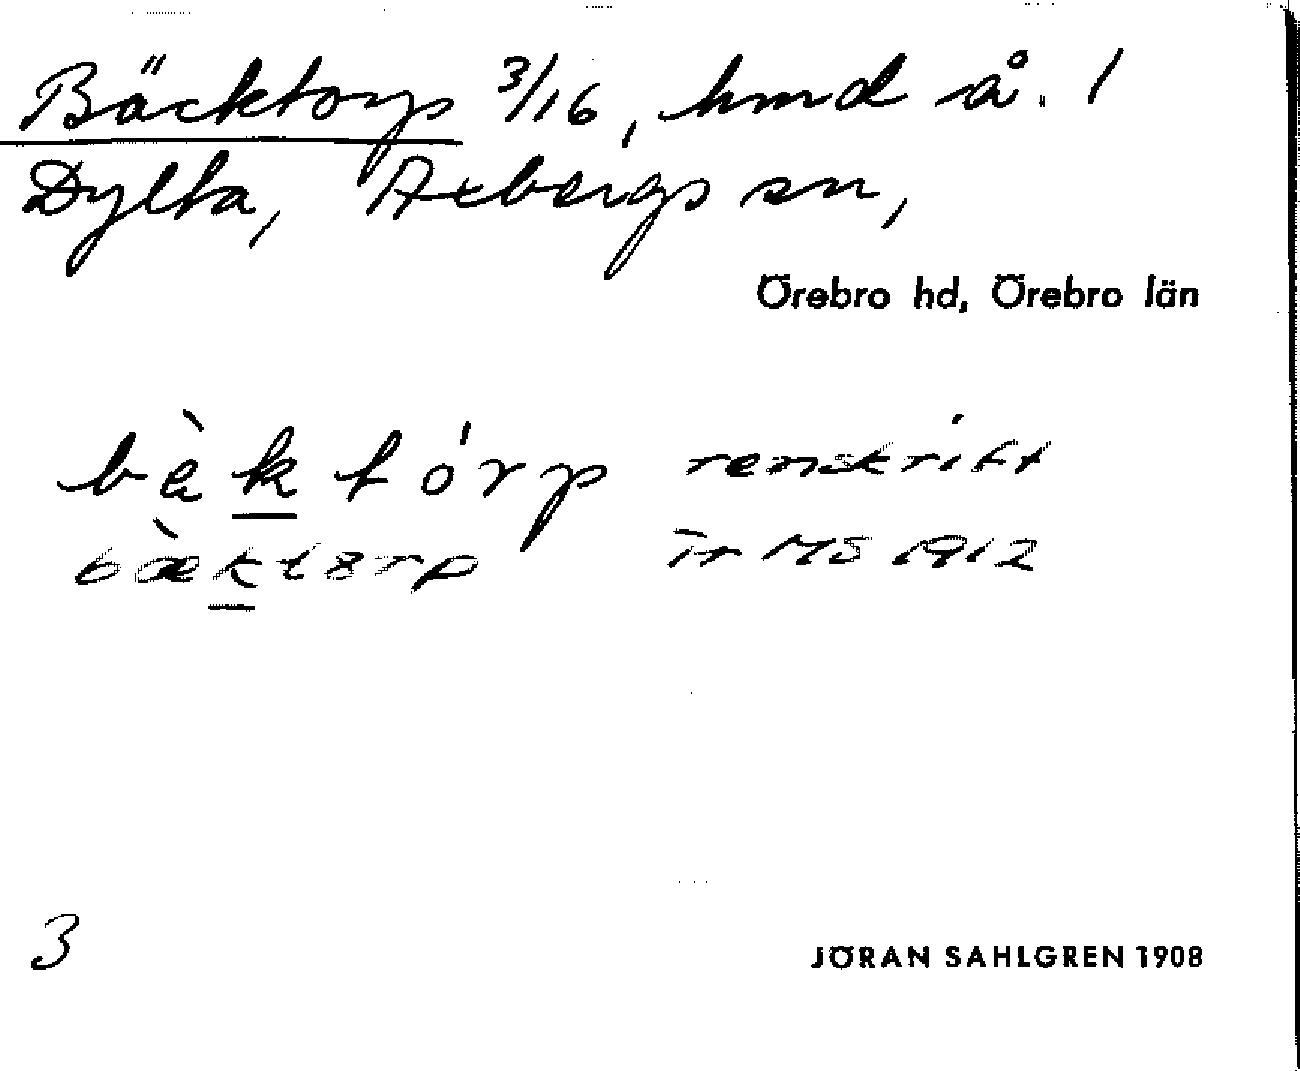 Bäcktorp 3/16, hmd å. 1
Dylta, Axbergs sn,
Örebro hd, Örebro län
bàktórp renskrift
bæ̀ktɜrp ir MS 1912
3
JÖRAN SAHLGREN 1908